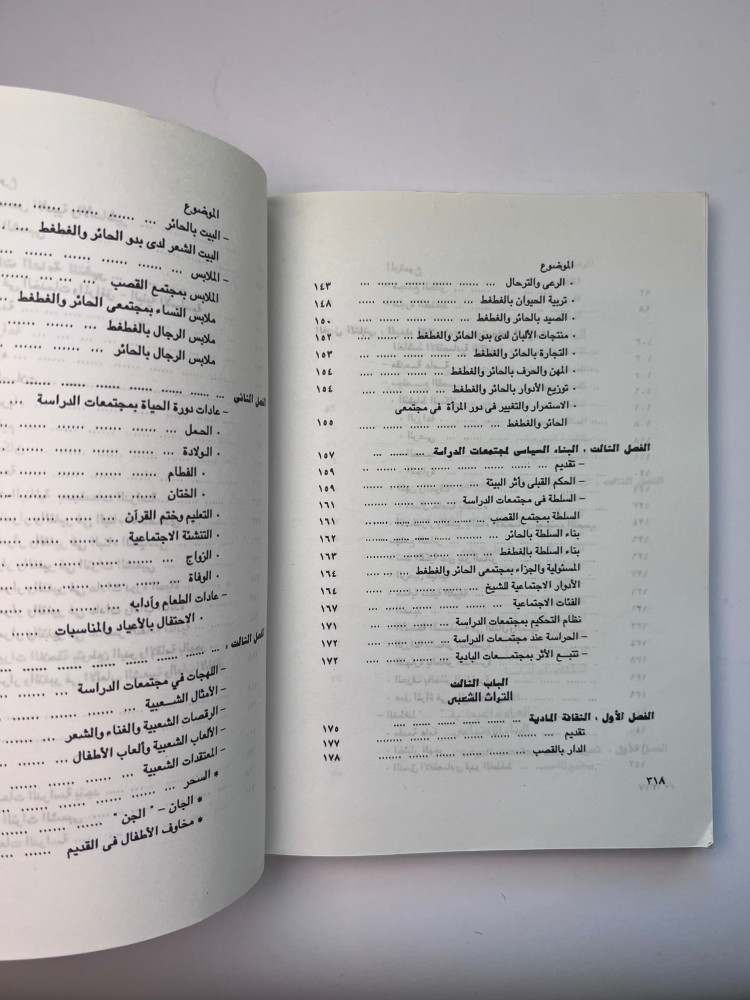 الموضوع
• الرعى والترحال ... ...... ...... ...... ...... ... ١٤٣
• تربية الحيوان بالغطغط ... ...... ...... ...... ..... ١٤٨
• الصيد بالحائر والغطغط ... ...... ...... ...... ..... ١٥٠
• منتجات الألبان لدى بدو الحائر والغطغط ... ...... ..... ١٥٢
• التجارة بالحائر والغطغط ... ...... ...... ...... .... ١٥٣
• المهن والحرف بالحائر والغطغط ... ...... ...... .... ١٥٤
• توزيع الأدوار بالحائر والغطغط ... ...... ...... .... ١٥٤
• الاستمرار والتغيير فى دور المرأة فى مجتمعى
الحائر والغطغط ... ...... ...... ...... ...... ..... ١٥٥
الفصل الثالث ، البناء السياسى لمجتمعات الدراسة ... ...... ... ١٥٧
– تقديم ... ...... ...... ...... ...... ...... .. ١٥٩
– الحكم القبلى وأثر البيئة ... ...... ...... ...... ... ١٥٩
– السلطة فى مجتمعات الدراسة ... ...... ...... ...... ١٦١
السلطة بمجتمع القصب ... ...... ...... ...... ...... ١٦١
بناء السلطة بالحائر ... ...... ...... ...... ...... ١٦٢
بناء السلطة بالغطغط ... ...... ...... ...... ...... ١٦٣
المسئولية والجزاء بمجتمعى الحائر والغطغط ... ...... .... ١٦٤
الأدوار الاجتماعية للشيخ ... ...... ...... ...... .... ١٦٤
الفئات الاجتماعية ... ...... ...... ...... ...... ... ١٦٧
نظام التحكيم بمجتمعات الدراسة ... ...... ...... .... ١٧١
– الحراسة عند مجتمعات الدراسة ... ...... ...... .... ١٧٢
– تتبع الأثر بمجتمعات البادية ... ...... ...... .... ١٧٢
الباب الثالث
التراث الشعبى
الفصل الأول ، الثقافة المادية ... ...... ...... ...... ...... ... ١٧٥
تقديم ... ...... ...... ...... ...... ...... ... ١٧٧
الدار بالقصب ... ...... ...... ...... ...... ...... ١٧٨
٣١٨
الموضوع
– البيت بالحائر ... ...... ...... ...... ......
البيت الشعر لدى بدو الحائر والغطغط ... ..
– الملابس ... ...... ...... ...... ......
الملابس بمجتمع القصب ... ...... ......
ملابس النساء بمجتمعى الحائر والغطغط ...
ملابس الرجال بالغطغط ... ...... ......
ملابس الرجال بالحائر ... ...... ......
الفصل الثانى ... ...... ...... ...... ......
– عادات دورة الحياة بمجتمعات الدراسة ... ....
• الحمل ... ...... ...... ...... ......
• الولادة ... ...... ...... ...... ......
• الفطام ... ...... ...... ...... ......
• الختان ... ...... ...... ...... ......
• التعليم وختم القرآن ... ...... ......
• التنشئة الاجتماعية ... ...... ......
• الزواج ... ...... ...... ...... ......
• الوفاة ... ...... ...... ...... ......
– عادات الطعام وآدابه ... ...... ......
• الاحتفال بالأعياد والمناسبات ......
الفصل الثالث ، ... ...... ...... ...... ......
– اللهجات في مجتمعات الدراسة ... ......
– الأمثال الشعبية ... ...... ...... ......
– الرقصات الشعبية والغناء والشعر ... ....
– الألعاب الشعبية وألعاب الأطفال ... ......
– المعتقدات الشعبية ... ...... ......
* السحر ... ...... ...... ......
* الجان – " الجن " ... ...... ......
* مخاوف الأطفال فى القديم ......